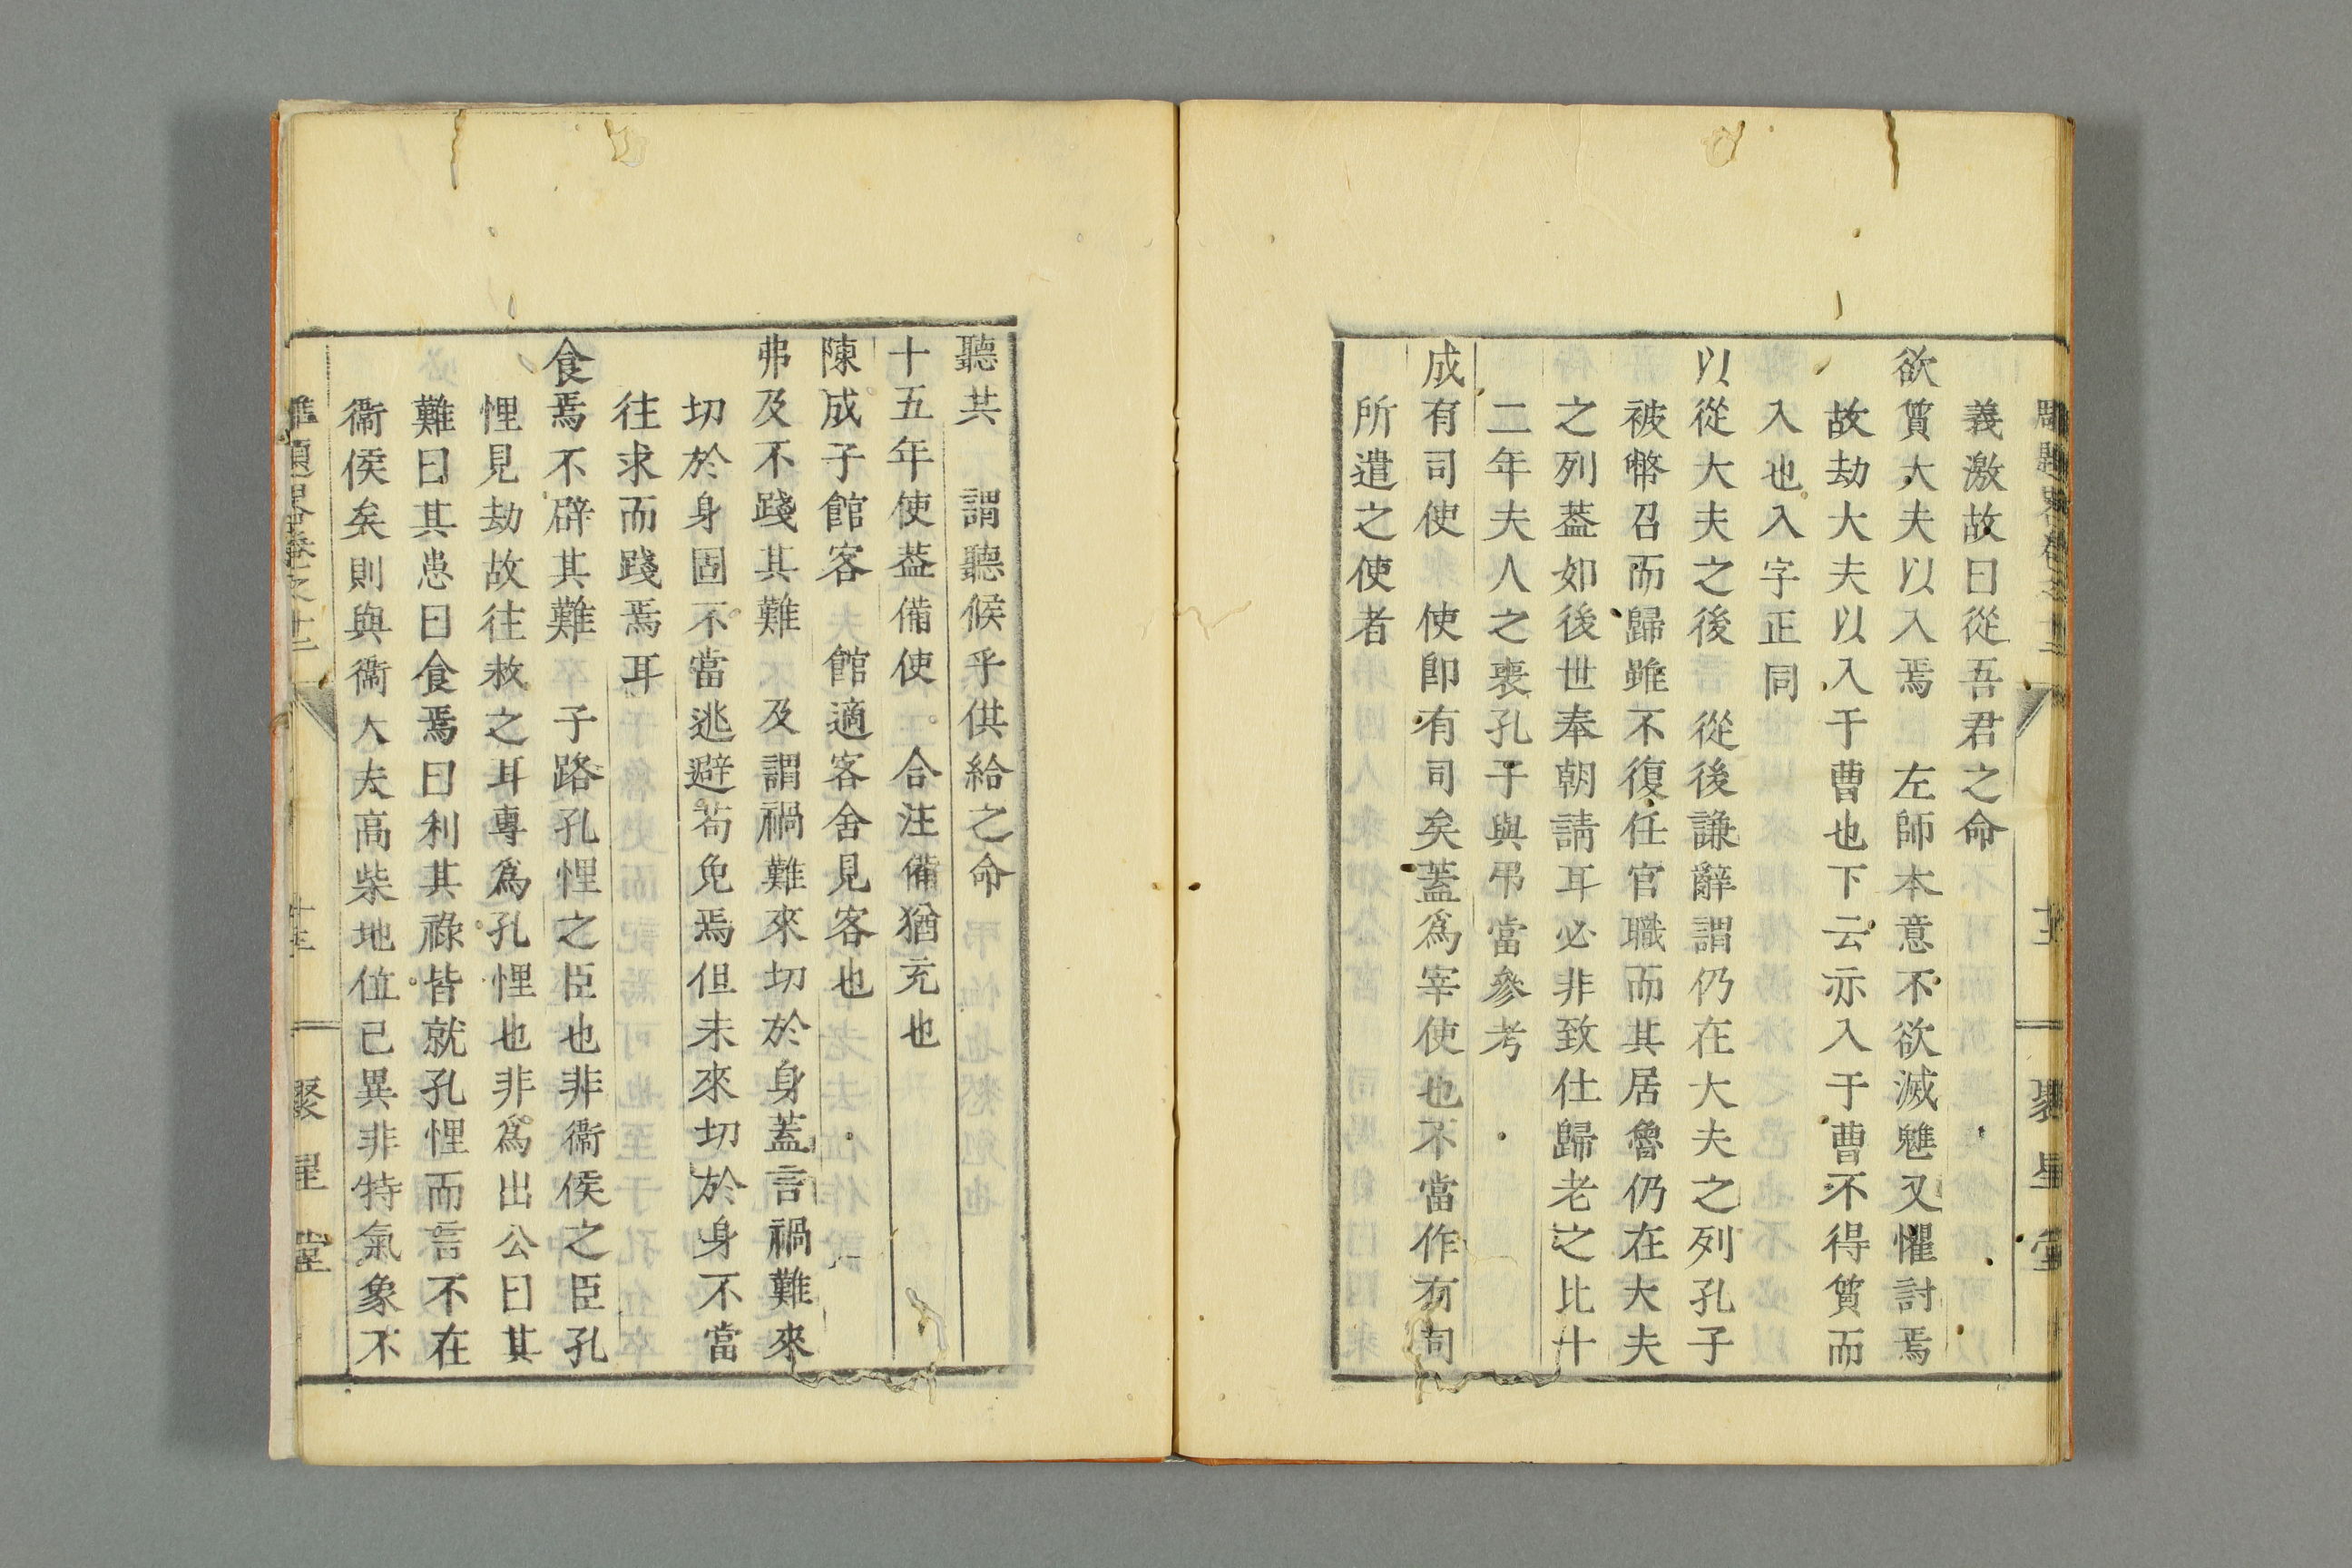 義激故曰從吾君之命
欲質大夫以入焉 左師本意不欲滅魋又懼討焉
故劫大夫以入于曹也下云亦入于曹不得質而
入也入字正同
以從大夫之後 從後謙辭謂仍在大夫之列孔子
被幣召而歸雖不復任官職而其居魯仍在大夫
之列葢如後世奉朝請耳必非致仕歸老之比十
二年夫人之喪孔子與弔當參考
成有司使 使卽有司矣蓋為宰使也不當作有司
所遣之使者
聽共 謂聽候乎供給之命
十五年使葢備使。合注備猶充也
陳成子館客 館適客舍見客也
弗及不踐其難 及謂禍難來切於身蓋言禍難來
切於身固不當逃避苟免焉但未來切於身不當
往求而踐焉耳
食焉不辟其難 子路孔悝之臣也非衞侯之臣孔
悝見劫故往救之耳專為孔悝也非為出公曰其
難曰其患曰食焉曰利其祿皆就孔悝而言不在
衞侯矣則與衞大夫高柴地位已異非特氣象不
聚星堂